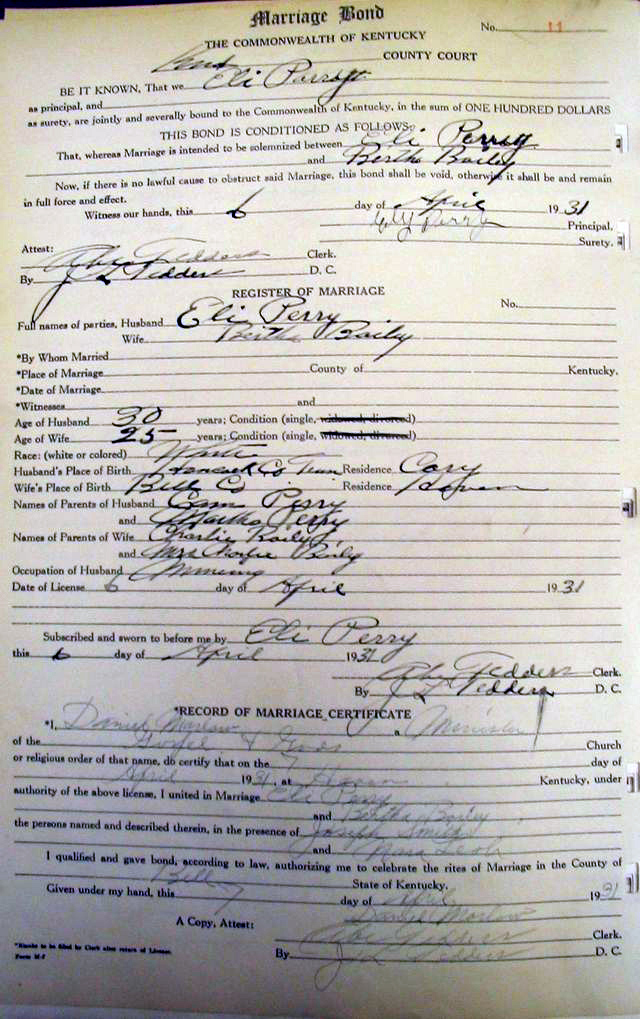 Marriage Bond
No. 11
THE COMMONWEALTH OF KENTUCKY
COUNTY COURT
BE IT KNOWN, That we Eli Parrott
as principal, and
as surety, are jointly and severally bound to the Commonwealth of Kentucky, in the sum of ONE HUNDRED DOLLARS
THIS BOND IS CONDITIONED AS FOLLOWS:
That, whereas Marriage is intended to be solemnized between Eli Perry
and Bertha Bailey
Now, if there is no lawful cause to obstruct said Marriage, this bond shall be void, otherwise it shall be and remain
in full force and effect.
Witness our hands, this 6 day of April 1931
Ely Perry Principal.
Surety.
Attest:
Abe Tedders Clerk.
By J L Tedders D. C.
REGISTER OF MARRIAGE
No.
Full names of parties, Husband Eli Perry
Wife Bertha Bailey
*By Whom Married
*Place of Marriage County of Kentucky.
*Date of Marriage
*Witnesses and
Age of Husband 30 years; Condition (single, widowed, divorced)
Age of Wife 25 years; Condition (single, widowed, divorced)
Race: (white or colored) White
Husband's Place of Birth Hancock Co Tenn Residence Cary
Wife's Place of Birth Bell Co Residence
Names of Parents of Husband Cam Perry
and Martha Perry
Names of Parents of Wife Charlie Baily
and Mrs Charlie Baily
Occupation of Husband Mining
Date of License 6 day of April 1931
Subscribed and sworn to before me by Eli Perry
this 6 day of April 1931
Abe Tedders Clerk.
By J L Tedders D. C.
*RECORD OF MARRIAGE CERTIFICATE
*I, Daniel Marlow a Minister
of the Church
or religious order of that name, do certify that on the 7 day of
April 1931, at Kentucky, under
authority of the above license, I united in Marriage Eli Perry
and Bertha Bailey
the persons named and described therein, in the presence of Joseph Smith
and
I qualified and gave bond, according to law, authorizing me to celebrate the rites of Marriage in the County of
Bell State of Kentucky.
Given under my hand, this 7 day of April 1931
Daniel Marlow
A Copy, Attest: Abe Tedders Clerk.
By J L Tedders D. C.
*Blanks to be filled by Clerk after return of License.